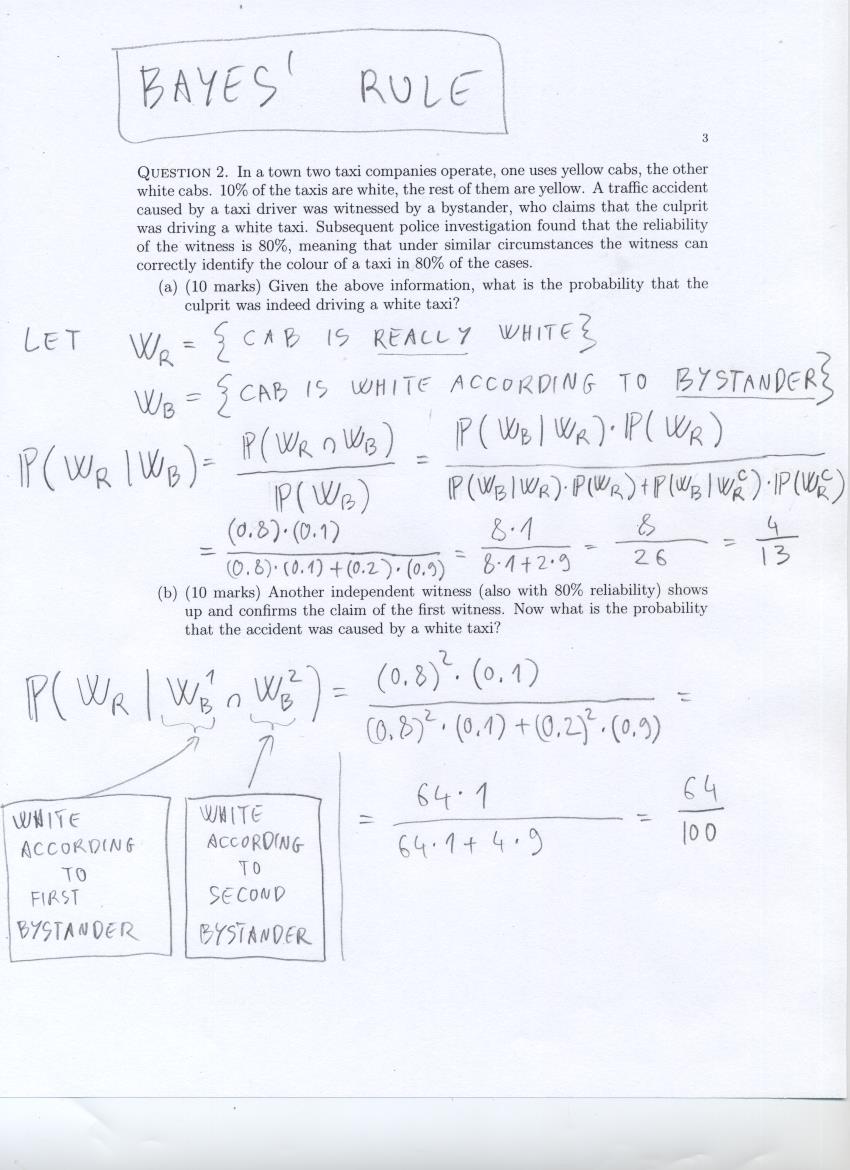 BAYES' RULE
3
QUESTION 2. In a town two taxi companies operate, one uses yellow cabs, the other
white cabs. 10% of the taxis are white, the rest of them are yellow. A traffic accident
caused by a taxi driver was witnessed by a bystander, who claims that the culprit
was driving a white taxi. Subsequent police investigation found that the reliability
of the witness is 80%, meaning that under similar circumstances the witness can
correctly identify the colour of a taxi in 80% of the cases.
(a) (10 marks) Given the above information, what is the probability that the
culprit was indeed driving a white taxi?
LET W_R = { CAB IS REALLY WHITE}
W_B = {CAB IS WHITE ACCORDING TO BYSTANDER}
ℙ(W_R | W_B) = ℙ(W_R ∩ W_B) / ℙ(W_B) = ℙ(W_B | W_R) · ℙ(W_R) / ℙ(W_B | W_R) · ℙ(W_R) + ℙ(W_B | W_R^C) · ℙ(W_R^C)
= (0.8)·(0.1) / (0.8)·(0.1)+(0.2)·(0.9) = 8·1 / 8·1+2·9 = 8/26 = 4/13
(b) (10 marks) Another independent witness (also with 80% reliability) shows
up and confirms the claim of the first witness. Now what is the probability
that the accident was caused by a white taxi?
ℙ(W_R | W_B^1 ∩ W_B^2) = (0.8)^2·(0.1) / (0.8)^2·(0.1)+(0.2)^2·(0.9) =
= 64·1 / 64·1+4·9 = 64/100
WHITE
ACCORDING
TO
FIRST
BYSTANDER
WHITE
ACCORDING
TO
SECOND
BYSTANDER